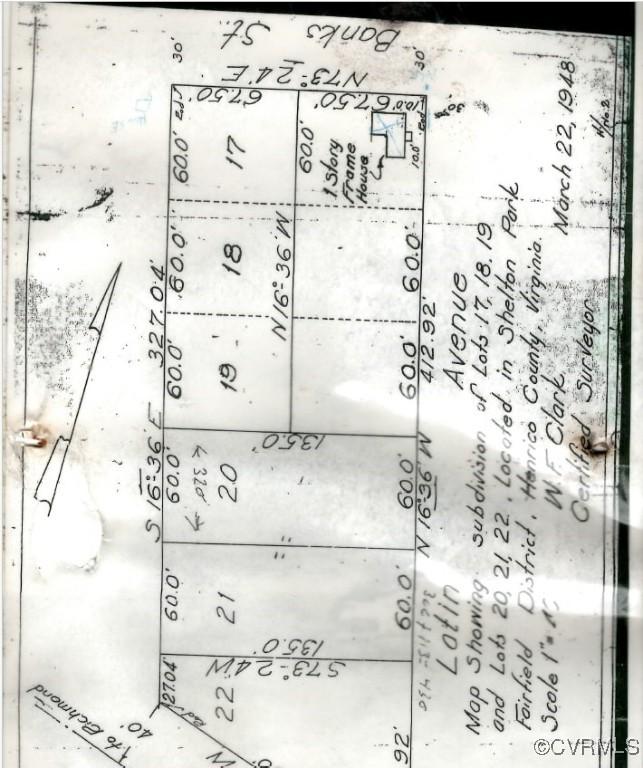 Banks St.
30'
30'
N73°-24'E
67.50'
67.50'
Rod
10.0'
Rod
30'
10.0'
60.0'
17
60.0'
1 Story
Frame
House
60.0'
18
N16°-36'W
60.0'
S 16°-36' E 327.04'
60.0'
19
60.0'
412.92'
135.0'
60.0'
20
60.0'
N 16°-36' W
60.0'
21
"
60.0'
135.0'
S73°-24'W
27.04'
22
Rod
W
92'
To Richmond
40'
Latin Avenue
Map Showing subdivision of Lots 17, 18, 19
and Lots 20, 21, 22, Located in Shelton Park
Fairfield District, Henrico County, Virginia.
Scale 1"=
March 22, 1948
W.F. Clark
Certified Surveyor
©CVRMLS